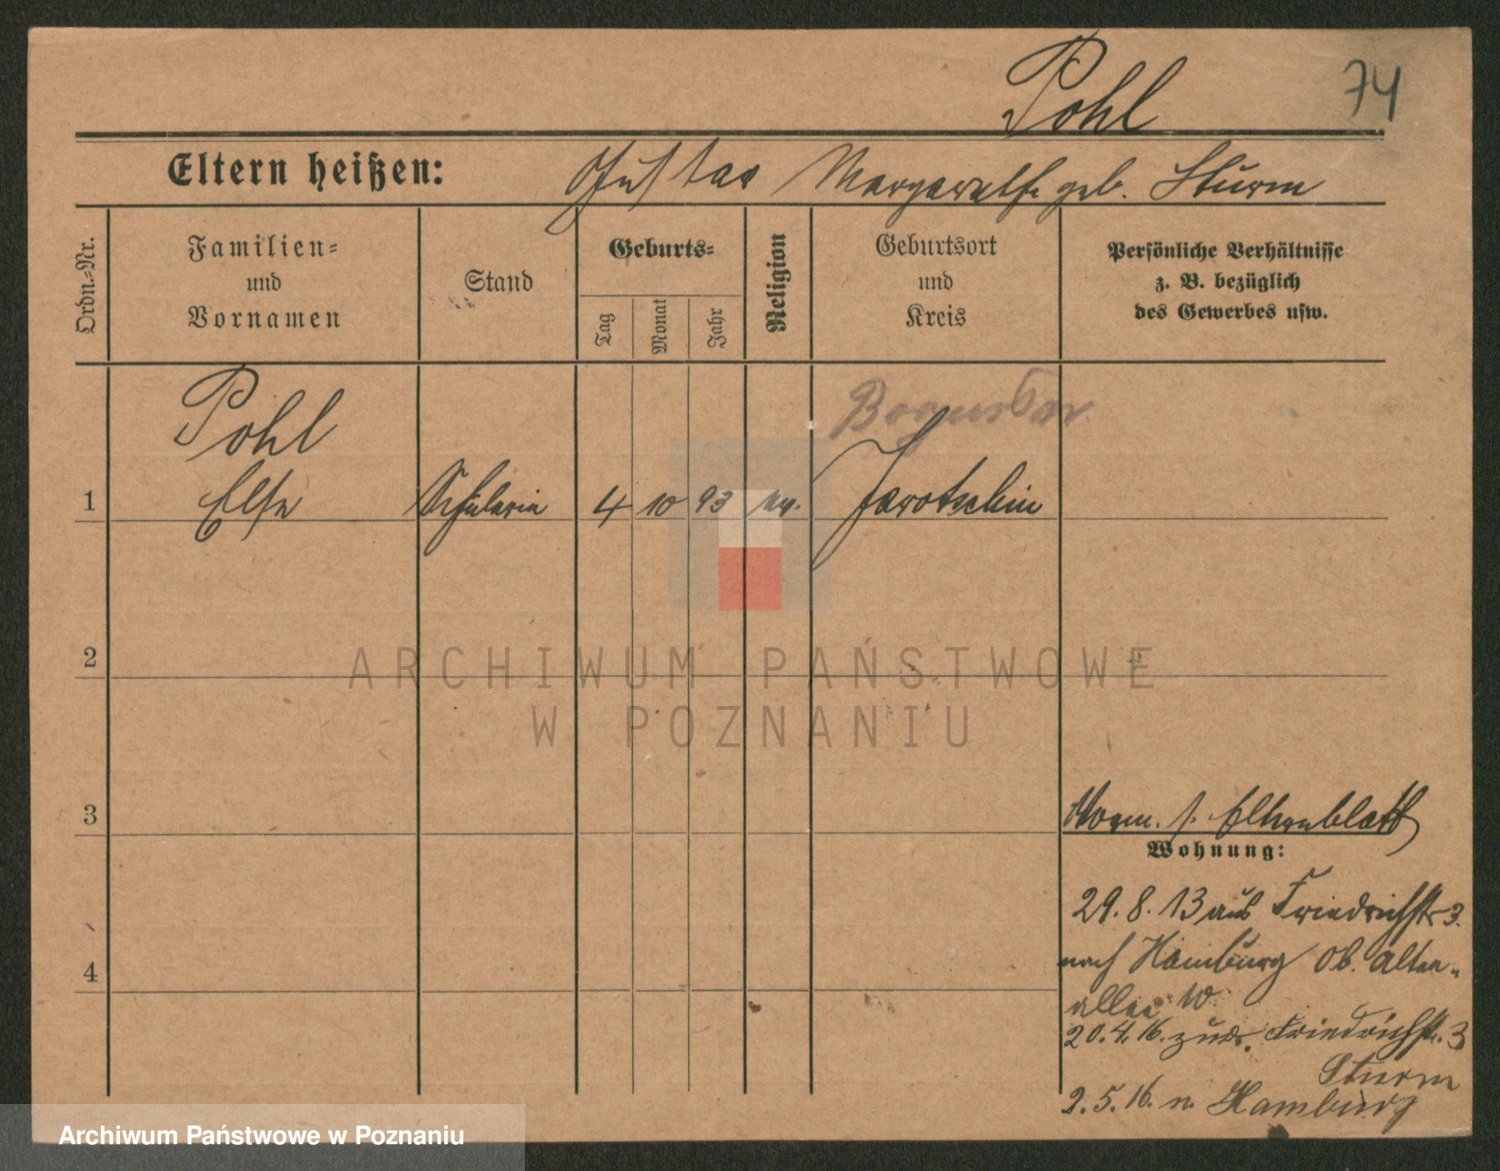 Pohl
74
Eltern heißen: Gustav Margarethe geb. Sturm
Ordn.-Nr.
Familien-
und
Vornamen
Stand
Geburts-
Tag
Monat
Jahr
Religion
Geburtsort
und
Kreis
Persönliche Verhältnisse
z. B. bezüglich
des Gewerbes usw.
Pohl
1 Else Schülerin 4 10 93 ev. Jarotschin
2
3
Vorm. s. Elternblatt
Wohnung:
29.8.13 aus Friedrichstr. 3.
nach Hamburg Ob. Alten-
allee 10
4
20.4.16. zur. Friedrichstr. 3
Sturm
2.5.16. n. Hamburg
ARCHIWUM PAŃSTWOWE
W POZNANIU
Archiwum Państwowe w Poznaniu